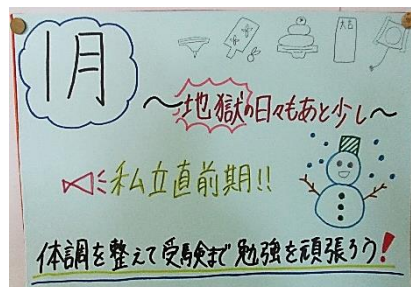 1月
大吉
～地獄の日々もあと少し～
私立直前期!!
体調を整えて受験まで勉強を頑張ろう!